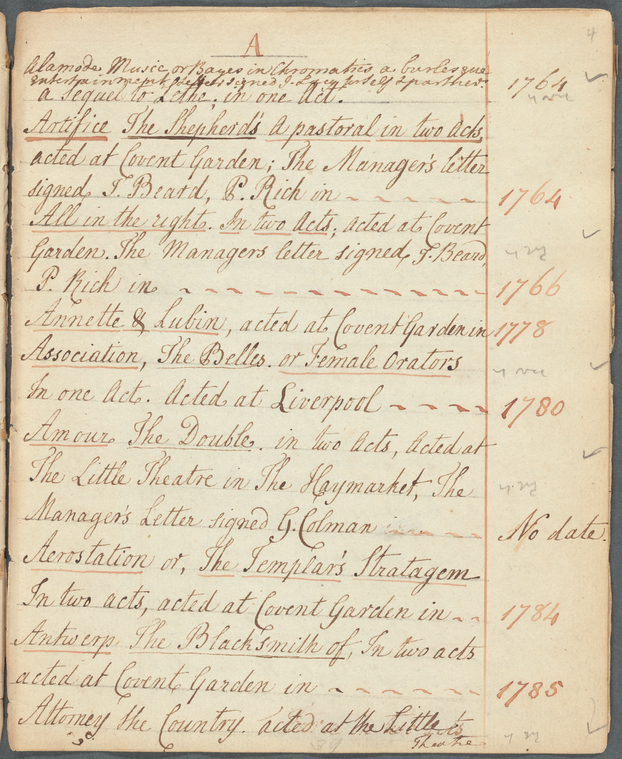 A
Alamode Music or Bayes in Chromatics a burlesque 1764
entertainment letter signed J.
a Sequel to Lethe. in one Act.
Artifice The Shepherd's A pastoral in two Acts,
acted at Covent Garden; The Manager's letter
signed J. Beard, P. Rich in 1764
All in the right. In two Acts; acted at Covent
Garden. The Managers letter signed, J. Beard,
P. Rich in 1766
Annette & Lubin, acted at Covent Garden in 1778
Association, The Belles. or Female Orators
In one Act. Acted at Liverpool 1780
Amour The Double. in two Acts, Acted at
The Little Theatre in The Haymarket, The
Manager's Letter signed G. Colman in No date.
Aerostation or, The Templar's Stratagem
In two acts, acted at Covent Garden in 1784
Antwerp The Blacksmith of, In two acts
acted at Covent Garden in 1785
Attorney the Country. acted at the Little
Theatre